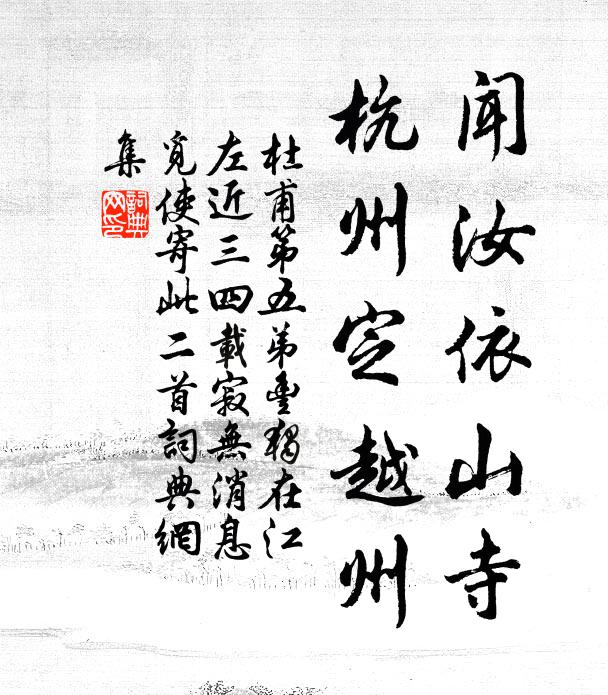 闻汝依山寺
杭州定越州
杜甫第五弟豐獨在江
左近三四載寂無消息
覓使寄此二首詞典網
集
詞典
网印